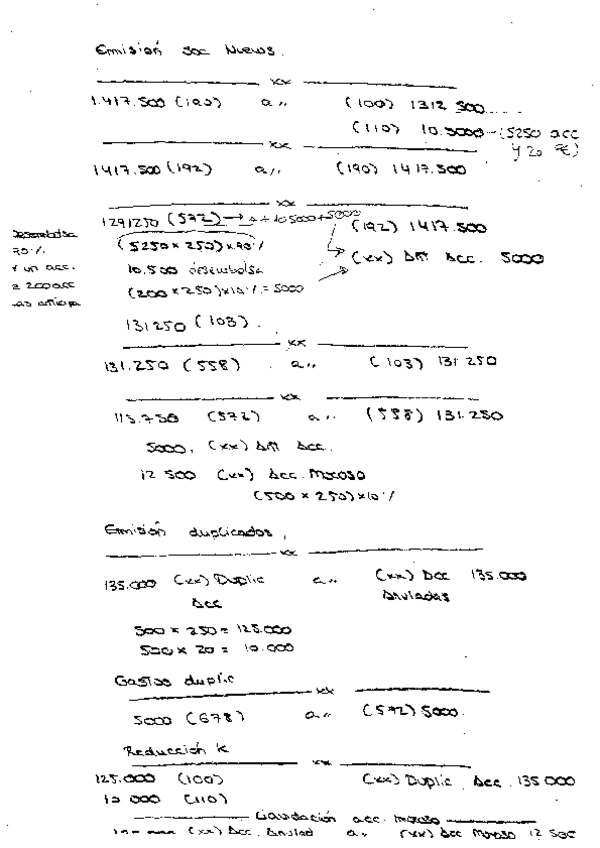 Emisión soc Nuevas.
xx
1.417.500 (190) a,, (100) 1312 500
(110) 10.5000 - (5250 acc y 20 €)
xx
1417.500 (192) a,, (190) 1417.500
xx
1291250 (572) → + 10500 + 5000 (192) 1417.500
(5250 x 250) x 90% (xx) Ant Acc. 5000
10.500 desembolsa
(200 x 250) x 10% = 5000
Desembolsa
90%
y un acc.
a 200 acc
131250 (103).
xx
131.250 (558) a,, (103) 131 250
xx
113.750 (572) a,, (558) 131.250
5000, (xx) Ant Acc.
12 500 (xx) Acc. Moroso
(500 x 250) x 10%
Emisión duplicados,
xx
135.000 (xx) Duplic a,, (xx) Acc 135.000
Acc Anuladas
500 x 250 = 125.000
500 x 20 = 10.000
Gastos duplic
xx
5000 (678) a,, (572) 5000.
Reducción K
xx
125.000 (100) (xx) Duplic. Acc. 135 000
10 000 (110)
Liquidación acc. moroso
(xx) Acc. Anulad a,, (xx) Acc Moroso 12 500